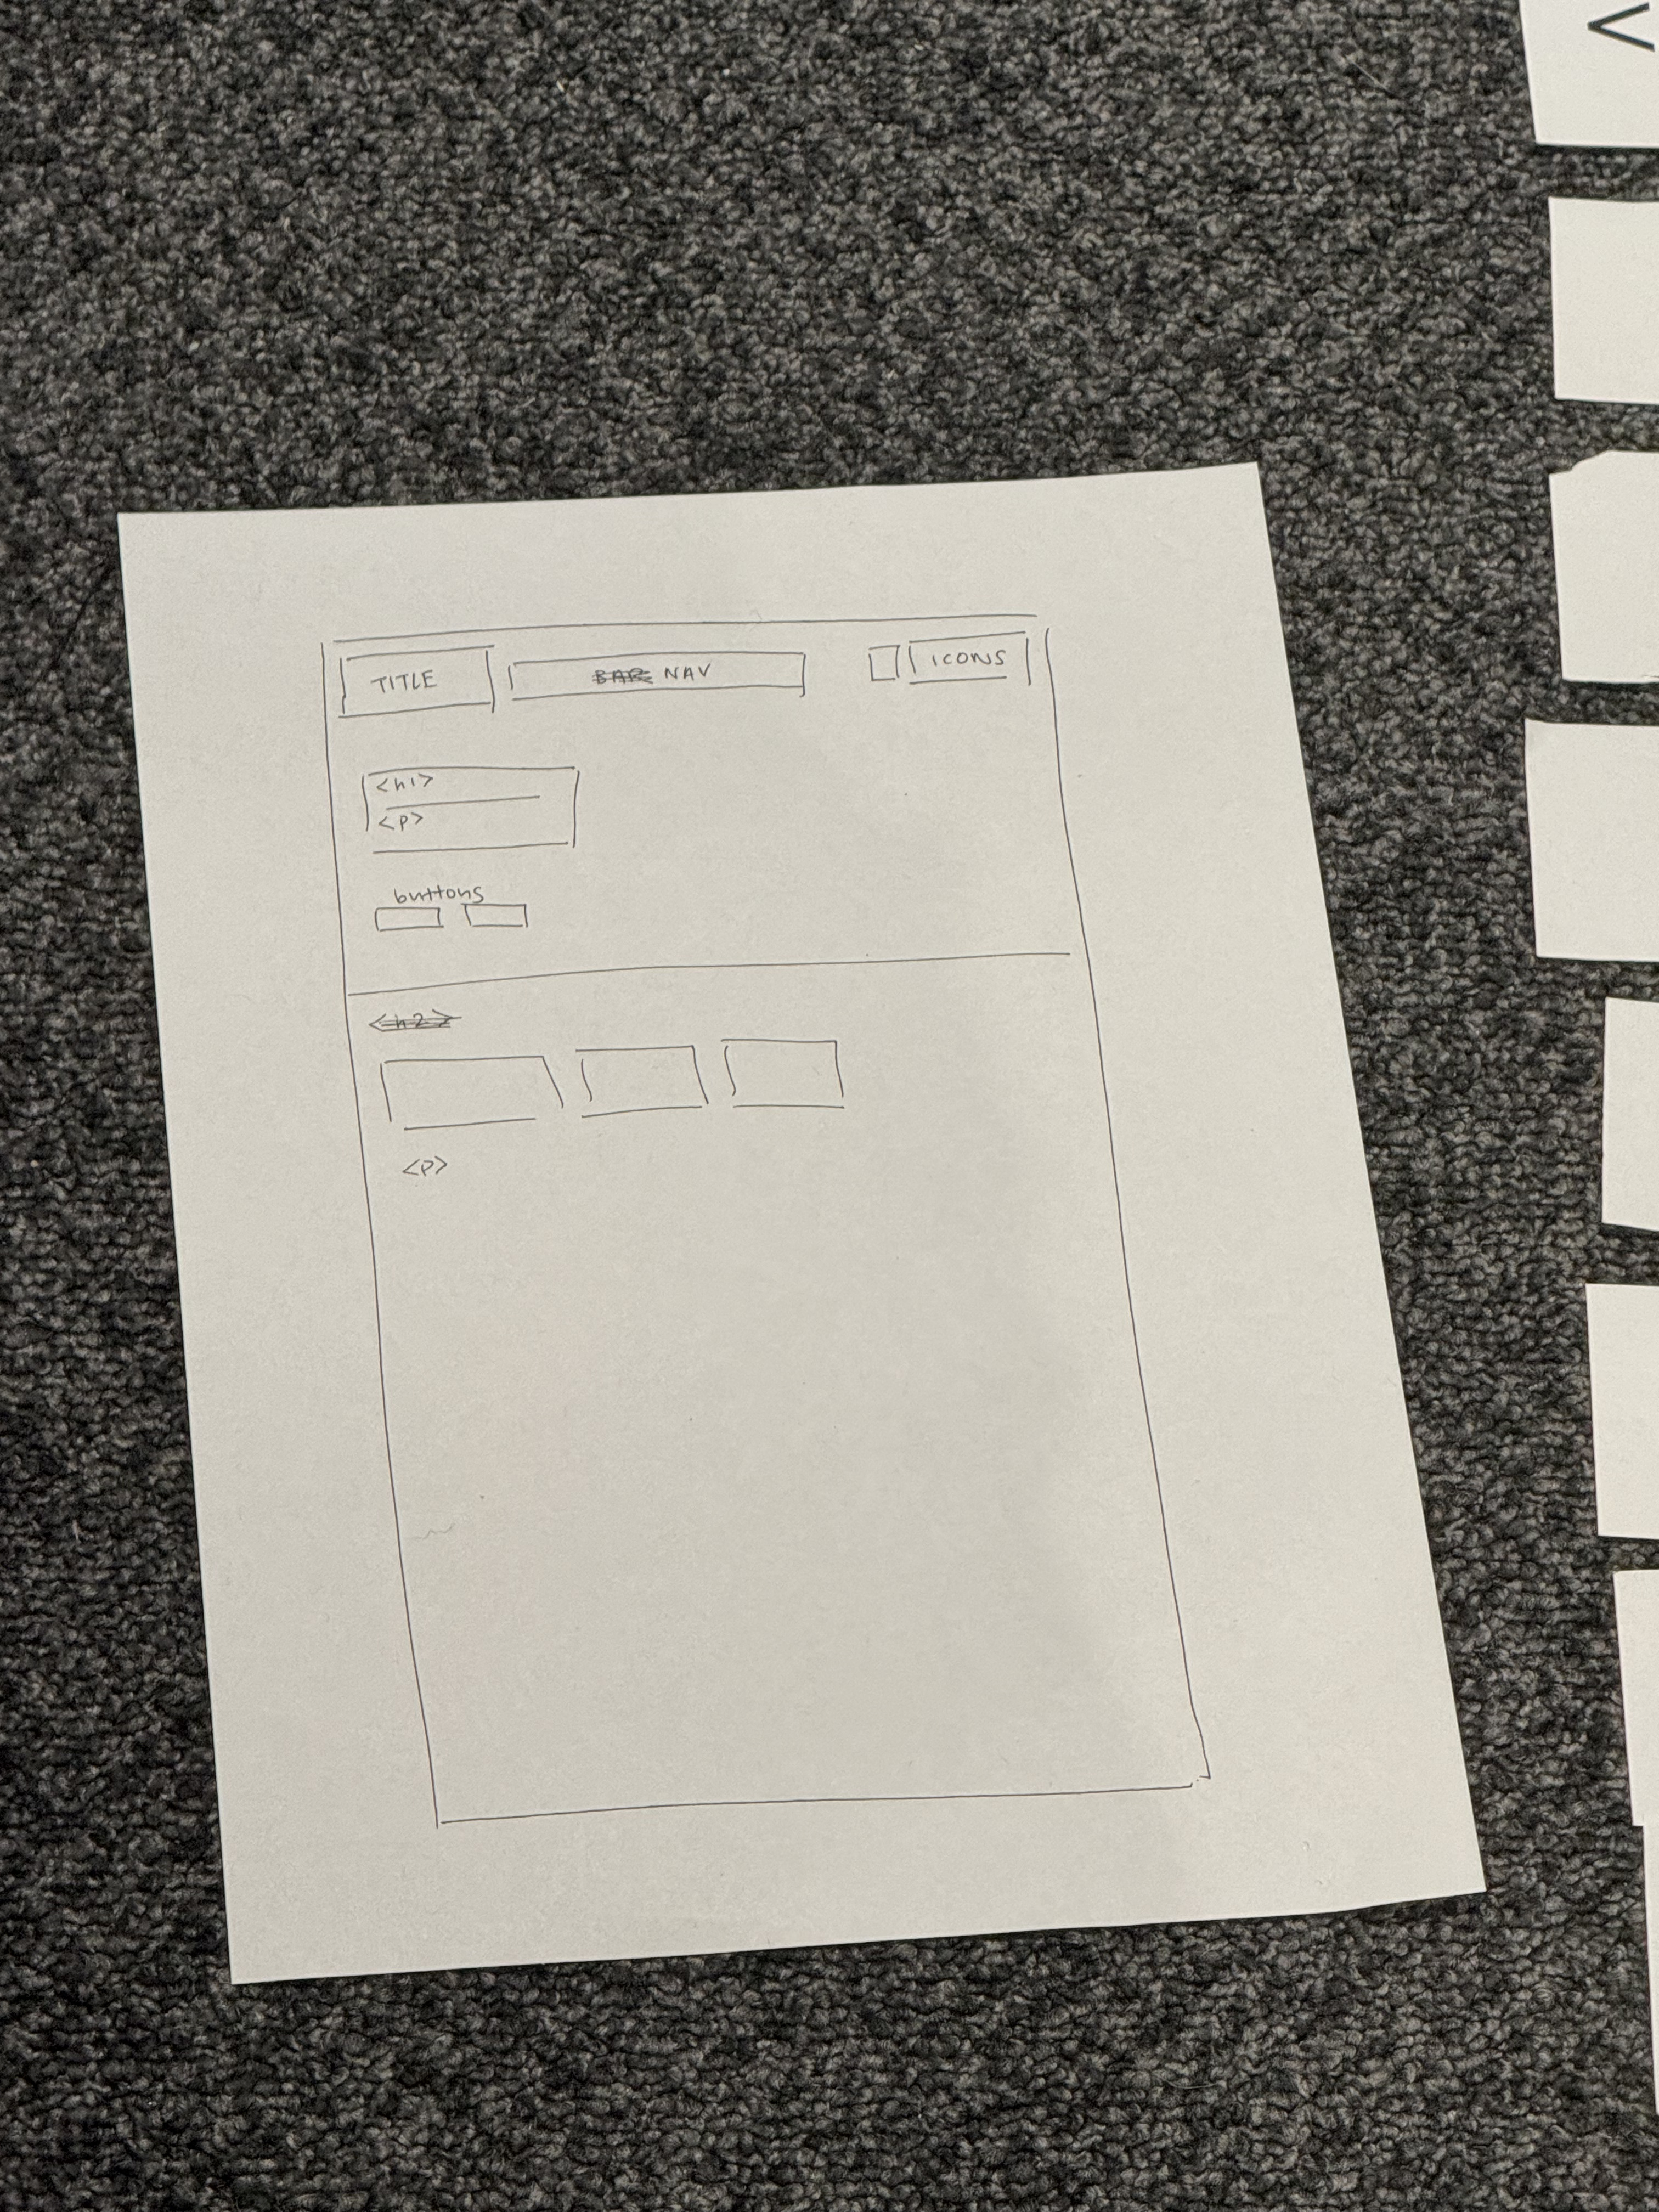 TITLE BAR NAV ICONS
<h1>
<p>
buttons
<h2>
<p>